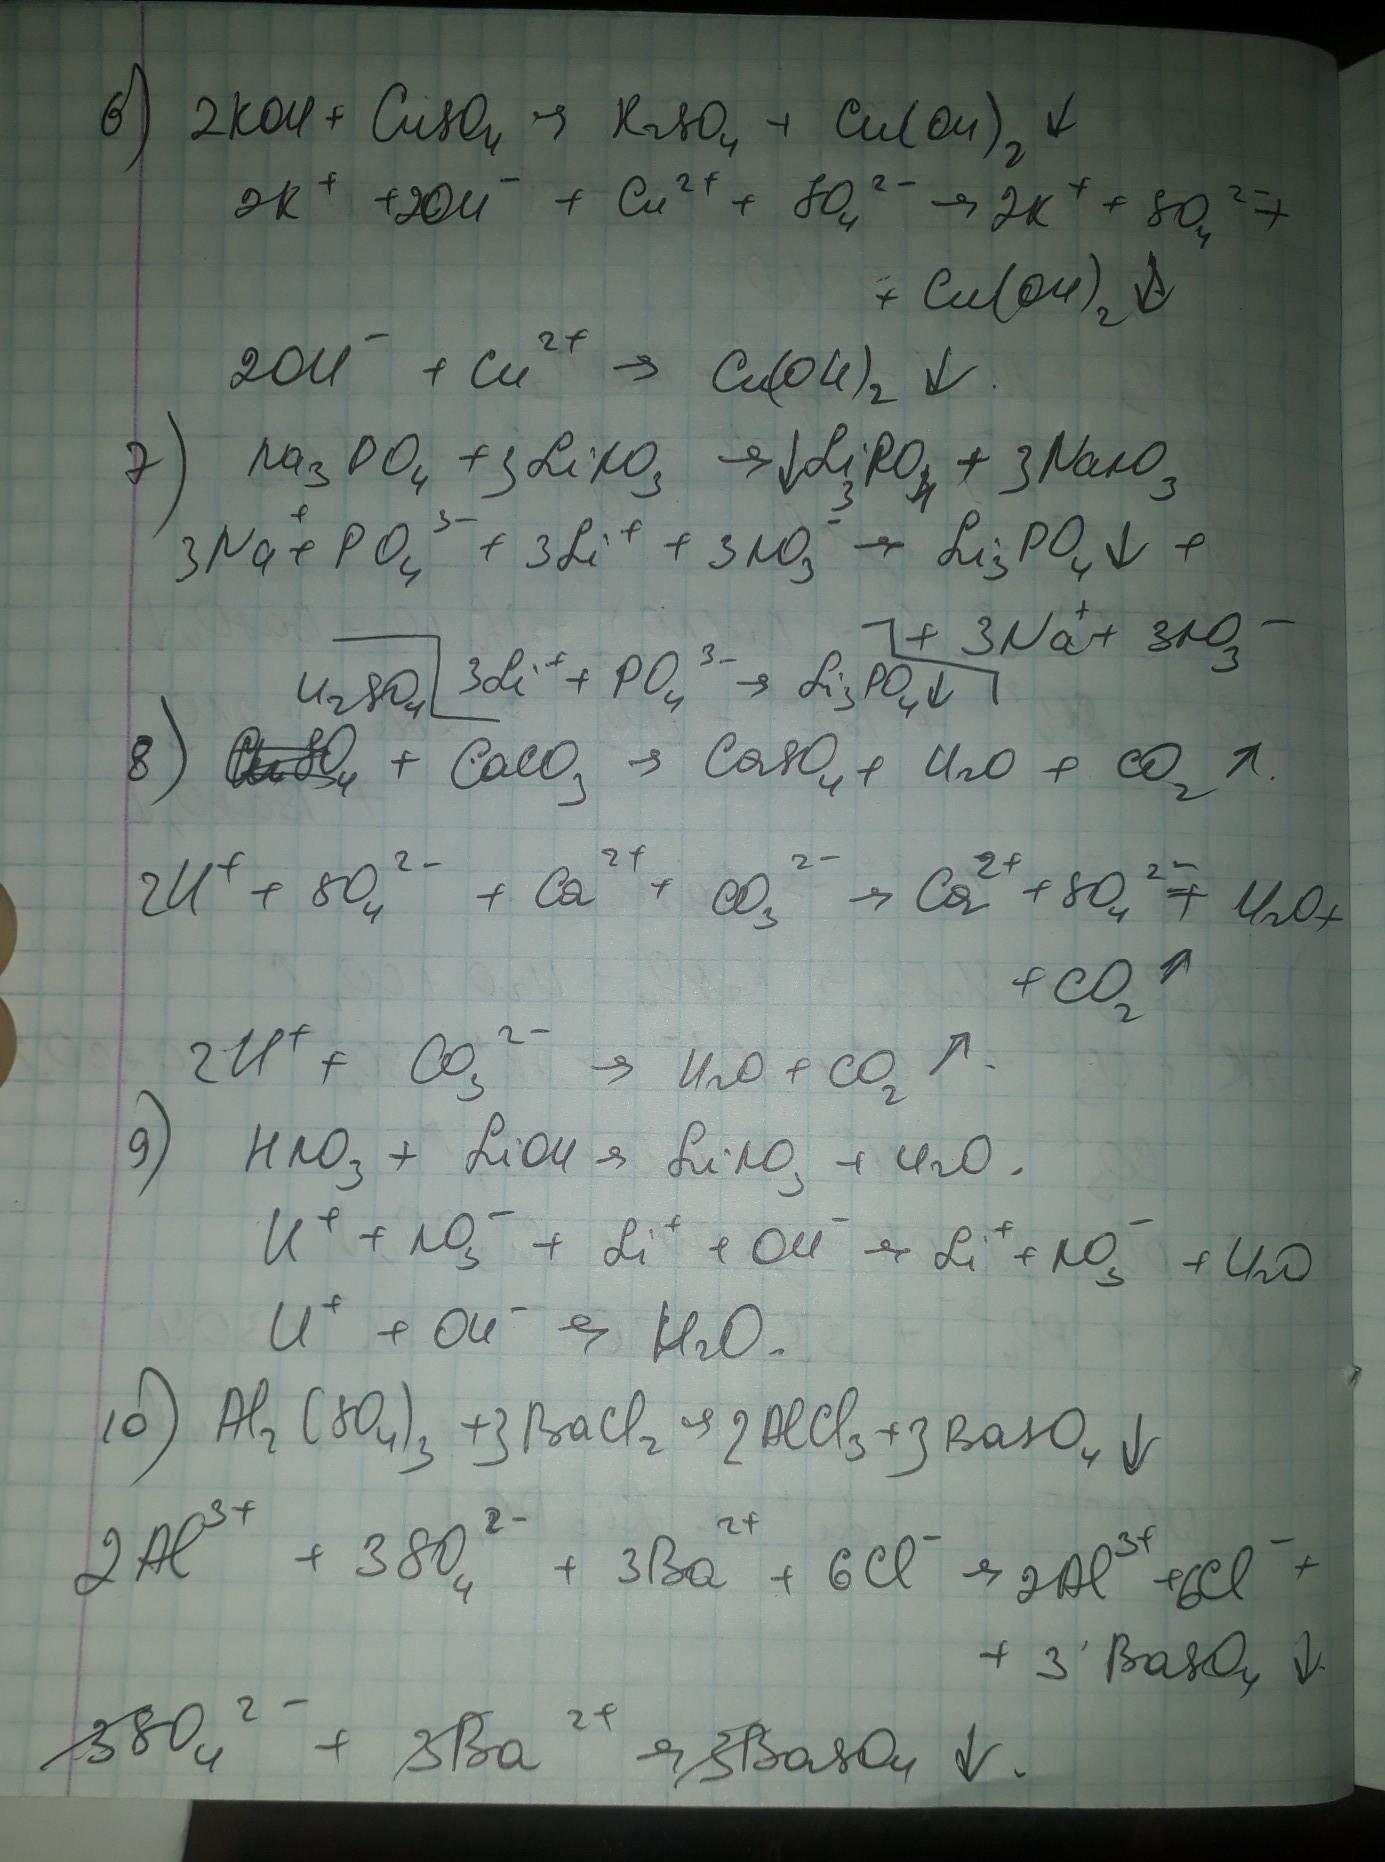 6) 2KOH + CuSO₄ → K₂SO₄ + Cu(OH)₂↓
2K⁺ + 2OH⁻ + Cu²⁺ + SO₄²⁻ → 2K⁺ + SO₄²⁻ +
+ Cu(OH)₂↓
2OH⁻ + Cu²⁺ → Cu(OH)₂↓.
7) Na₃PO₄ + 3LiNO₃ → ↓Li₃PO₄ + 3NaNO₃
3Na⁺ + PO₄³⁻ + 3Li⁺ + 3NO₃⁻ → Li₃PO₄↓ +
+ 3Na⁺ + 3NO₃⁻
3Li⁺ + PO₄³⁻ → Li₃PO₄↓
8) H₂SO₄ + CaCO₃ → CaSO₄ + H₂O + CO₂↑.
2H⁺ + SO₄²⁻ + Ca²⁺ + CO₃²⁻ → Ca²⁺ + SO₄²⁻ + H₂O +
+ CO₂↑
2H⁺ + CO₃²⁻ → H₂O + CO₂↑.
9) HNO₃ + LiOH → LiNO₃ + H₂O.
H⁺ + NO₃⁻ + Li⁺ + OH⁻ → Li⁺ + NO₃⁻ + H₂O
H⁺ + OH⁻ → H₂O.
10) Al₂(SO₄)₃ + 3BaCl₂ → 2AlCl₃ + 3BaSO₄↓
2Al³⁺ + 3SO₄²⁻ + 3Ba²⁺ + 6Cl⁻ → 2Al³⁺ + 6Cl⁻ +
+ 3BaSO₄↓.
3SO₄²⁻ + 3Ba²⁺ → 3BaSO₄↓.